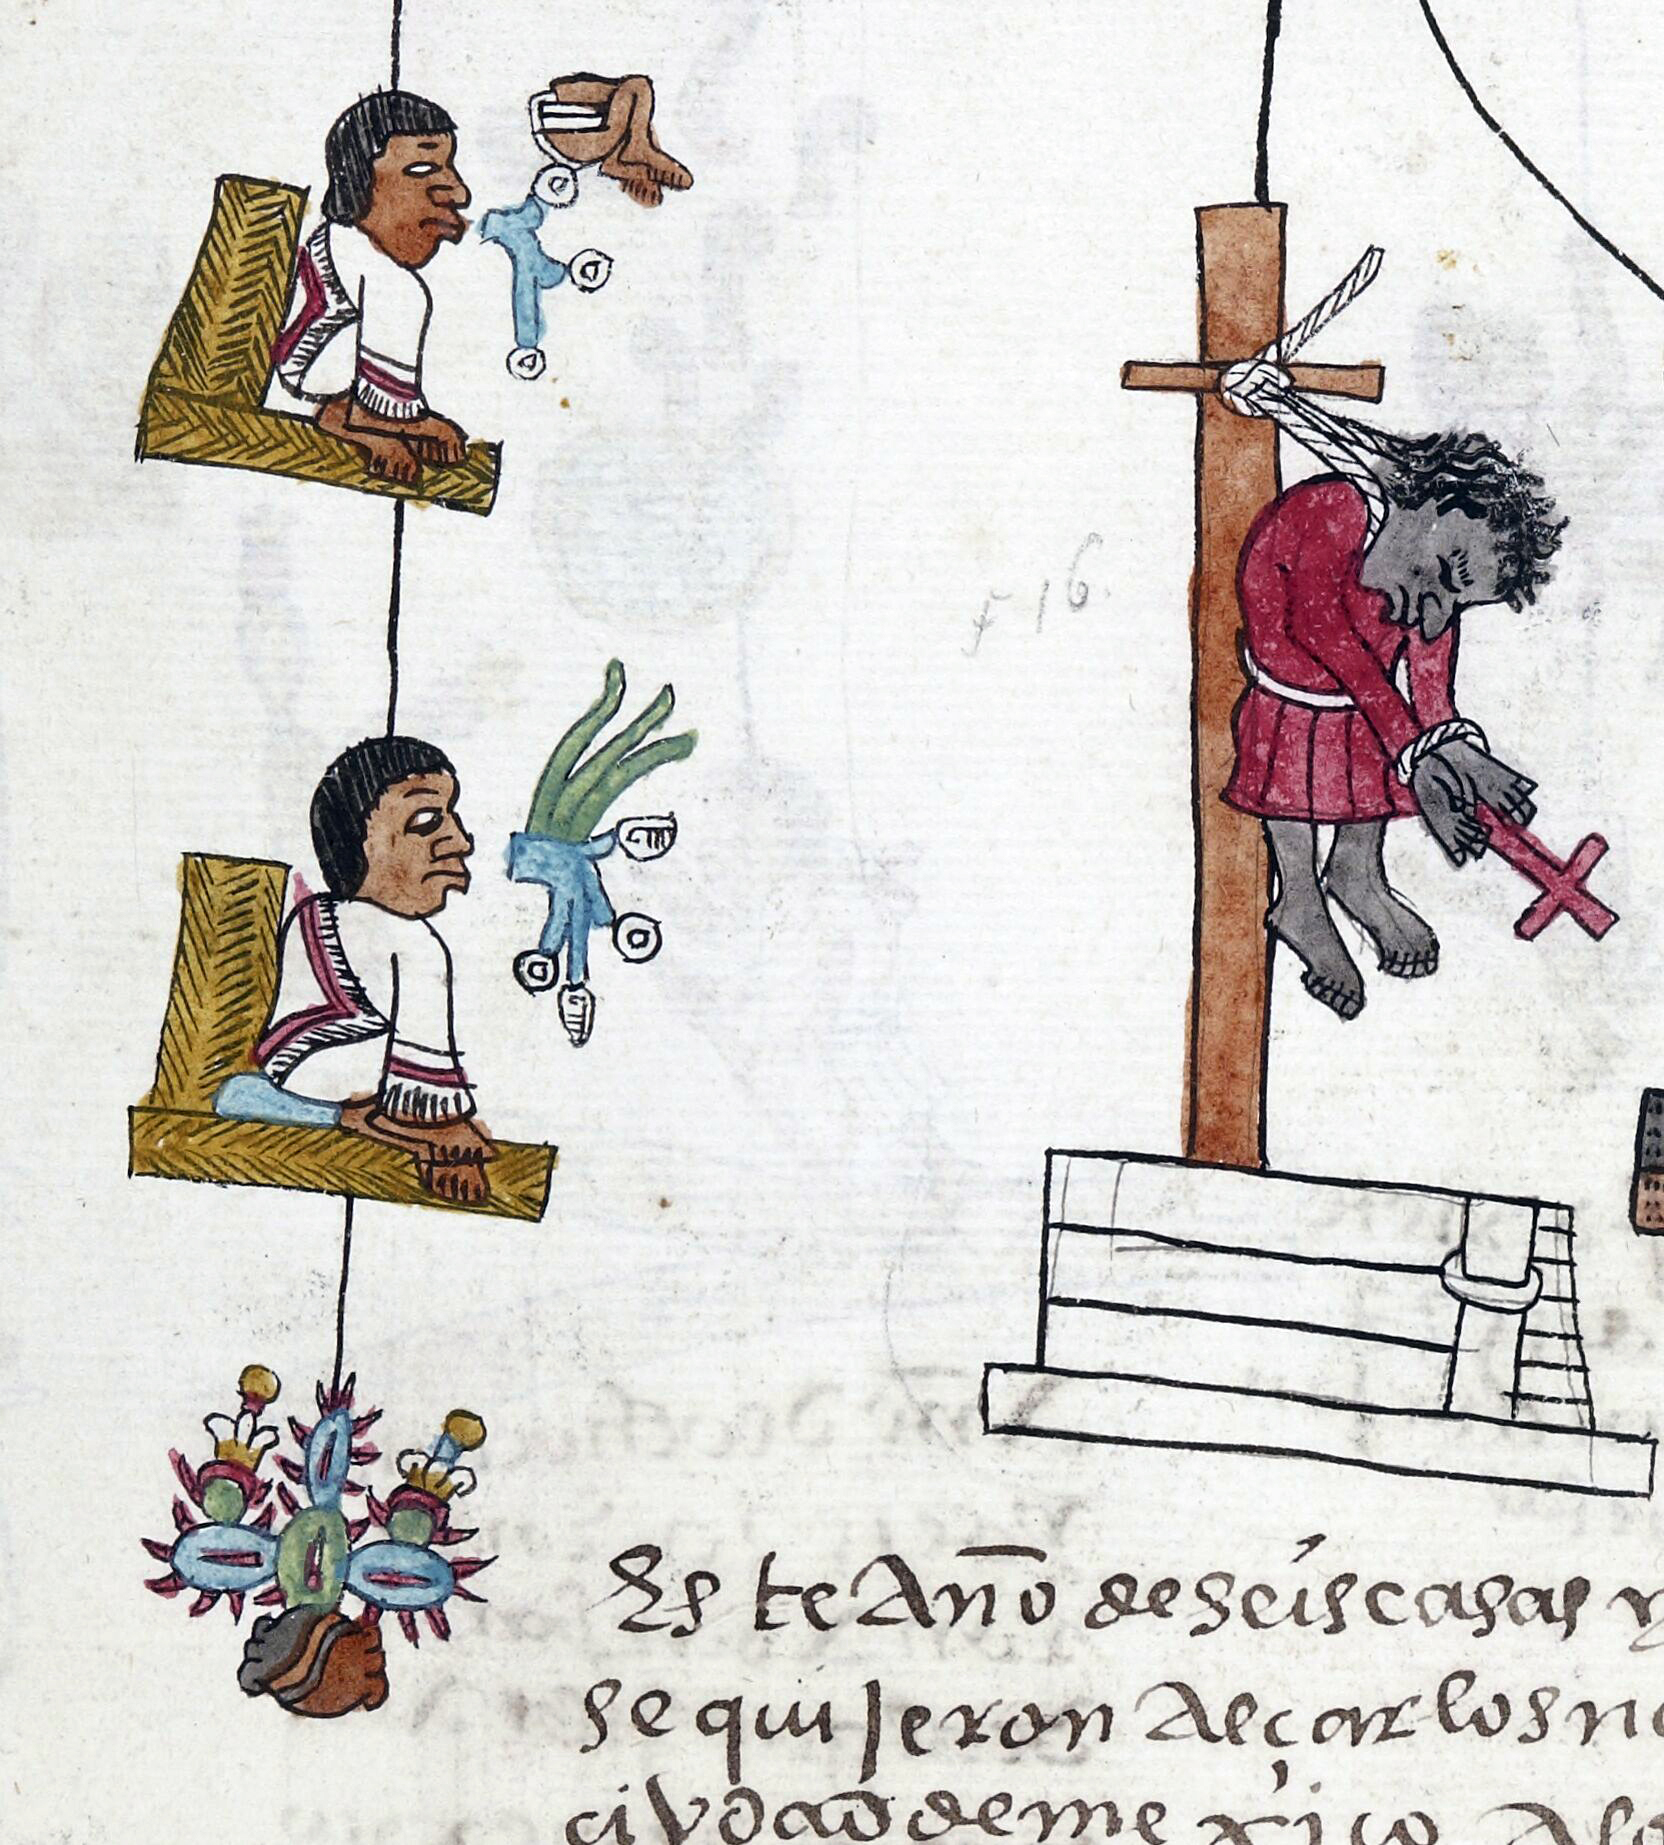 f 16.
Este Año de seis casas y
se quisieron Alçar los ne
ciudad de mexico